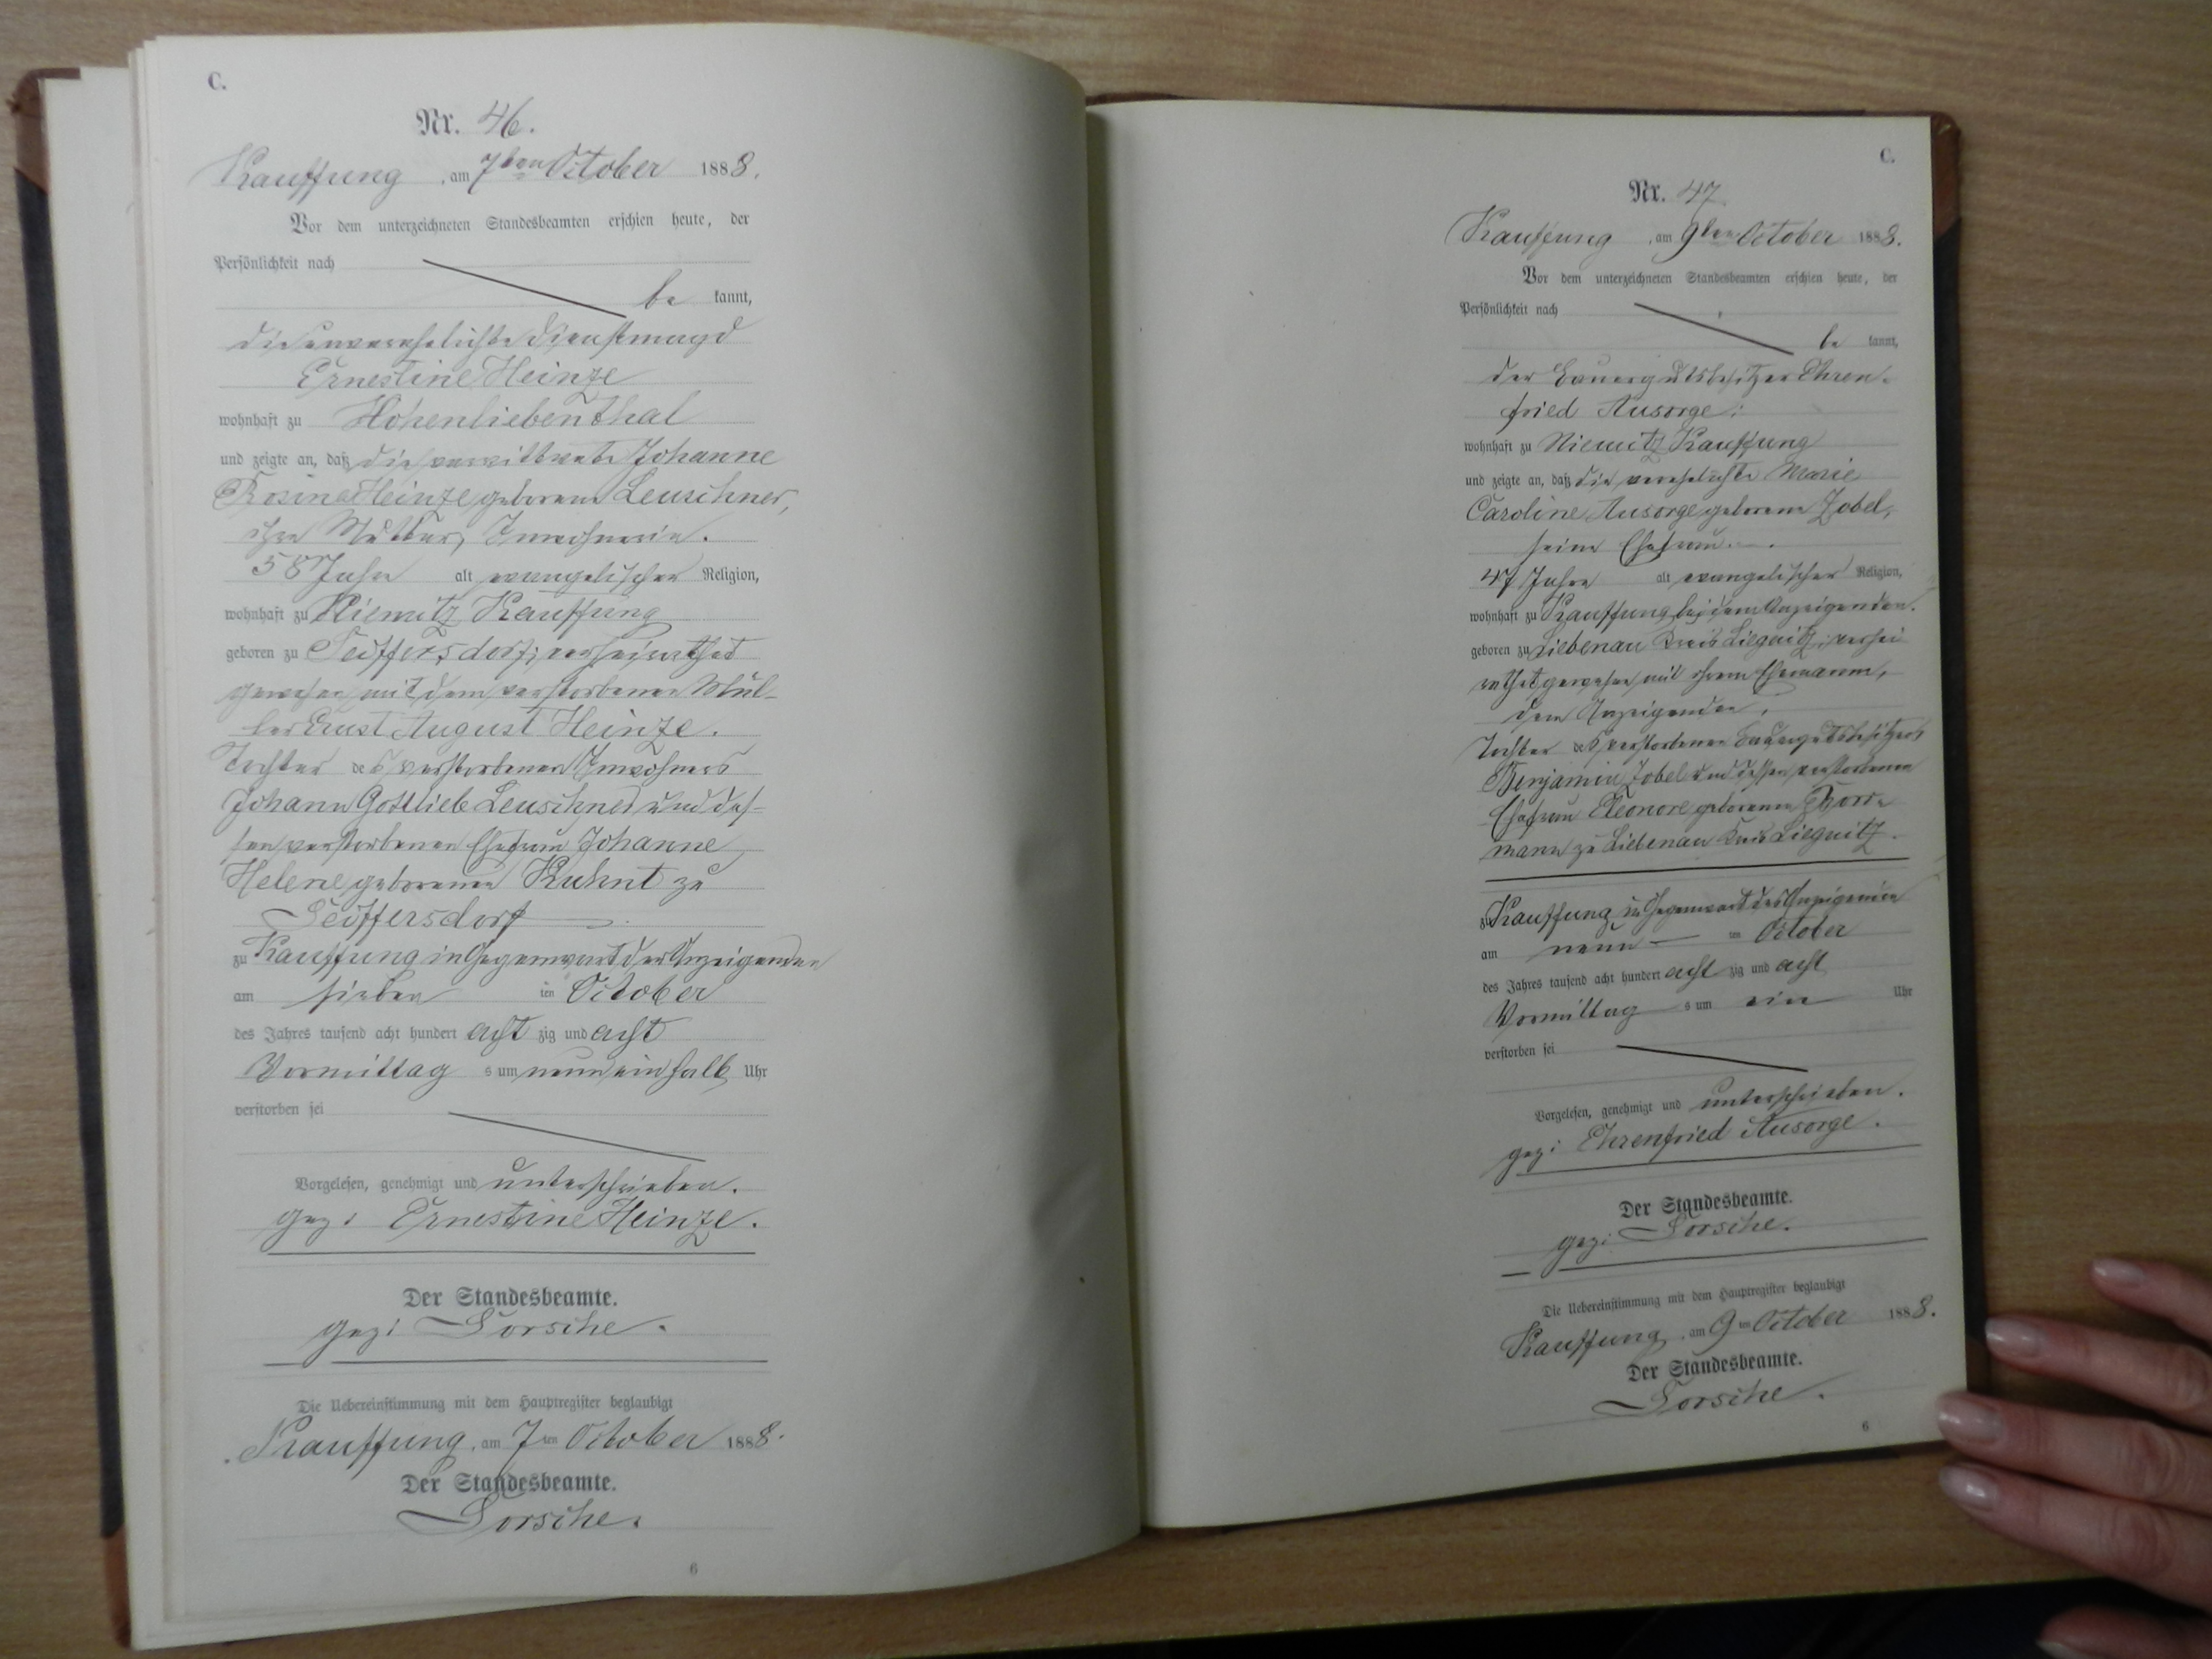 C.
Nr. 46.
Kauffung, am 7ten October 1888.
Vor dem unterzeichneten Standesbeamten erschien heute, der
Persönlichkeit nach
be kannt,
die unverehelichte Dienstmagd
Ernestine Heinze
wohnhaft zu Hohenliebenthal
und zeigte an, daß die verwittwete Johanne
Rosina Heinze geborene Leuschner,
ihre Mutter, Inwohnerin.
58 Jahre alt evangelischer Religion,
wohnhaft zu Niemitz Kauffung
geboren zu Seiffersdorf; verheirathet
gewesen mit dem verstorbenen Mül-
ler Ernst August Heinze.
Tochter des verstorbenen Inwohners
Johann Gottlieb Leuschner und des-
sen verstorbenen Ehefrau Johanne
Helene geborenen Kuhnt zu
Seiffersdorf
zu Kauffung in Gegenwart der Anzeigenden
am sieben ten October
des Jahres tausend acht hundert acht zig und acht
Vormittag s um neun ein halb Uhr
verstorben sei
Vorgelesen, genehmigt und unterschrieben.
gez: Ernestine Heinze.
Der Standesbeamte.
gez: Sorsche.
Die Uebereinstimmung mit dem Hauptregister beglaubigt
Kauffung, am 7ten October 1888.
Der Standesbeamte.
Sorsche.
6
C.
Nr. 47.
Kauffung, am 9ten October 1888.
Vor dem unterzeichneten Standesbeamten erschien heute, der
Persönlichkeit nach
be kannt,
der Bauergutsbesitzer Ehren-
fried Ansorge;
wohnhaft zu Niemitz Kauffung
und zeigte an, daß die verehelichte Marie
Caroline Ansorge geborene Zobel,
seine Ehefrau.
47 Jahre alt evangelischer Religion,
wohnhaft zu Kauffung bei dem Anzeigenden.
geboren zu Liebenau Kreis Liegnitz; verhei
rathet gewesen mit ihrem Ehemann,
dem Anzeigenden,
Tochter des verstorbenen Bauergutsbesitzers
Benjamin Zobel und dessen verstorbenen
Ehefrau Eleonore geborenen
mann zu Liebenau Kreis Liegnitz.
zu Kauffung in Gegenwart des Anzeigenden
am neun ten October
des Jahres tausend acht hundert acht zig und acht
Vormittag s um ein Uhr
verstorben sei
Vorgelesen, genehmigt und unterschrieben.
gez: Ehrenfried Ansorge.
Der Standesbeamte.
gez: Sorsche.
Die Uebereinstimmung mit dem Hauptregister beglaubigt
Kauffung, am 9ten October 1888.
Der Standesbeamte.
Sorsche.
6